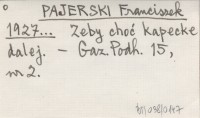 PAJERSKI Franciszek
1927... Żeby choć kapeckę
dalej. – Gaz. Podh. 15,
nr 2.